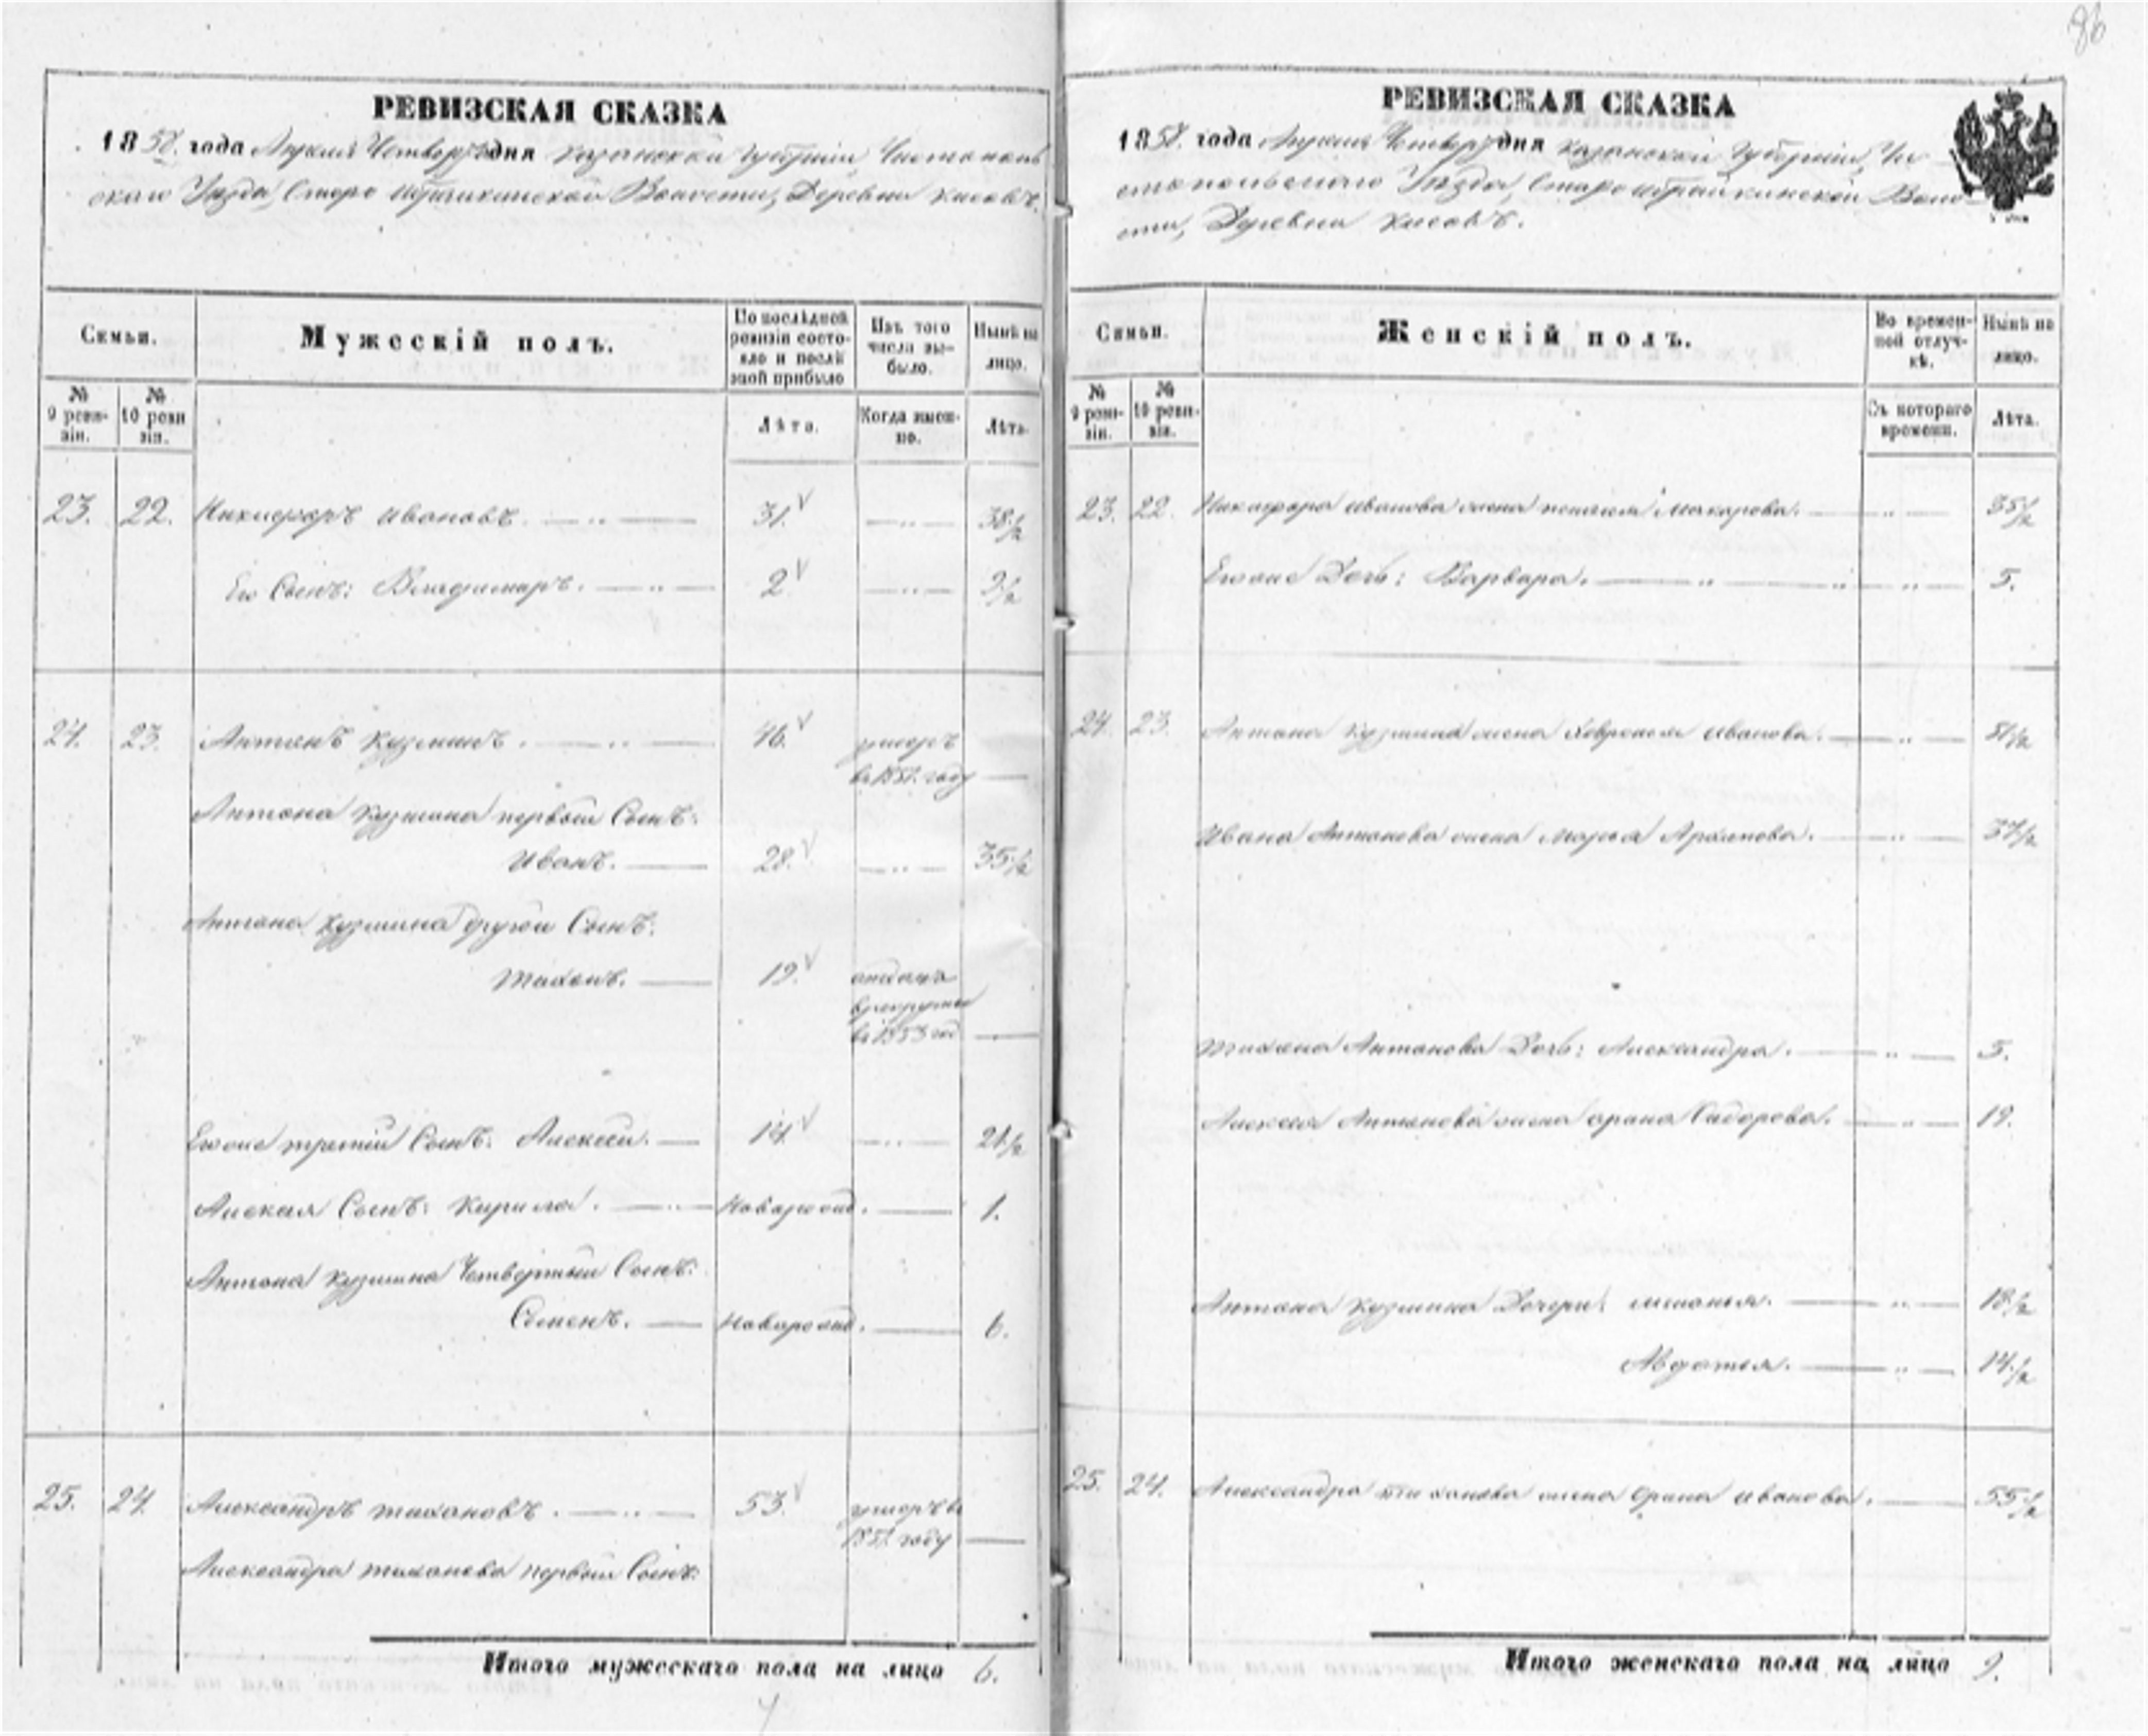 86
РЕВИЗСКАЯ СКАЗКА
1858. года Апреля Четверт дня Казанской Губернiи, Чистополь
скаго Уезда, Старо Ибрайкинской Волости, Деревни Кисовъ.
Семьи.
Мужескiй полъ.
По последней
ревизiи состо-
яло и после
оной прибыло
Изъ того
числа вы-
было.
Ныне на
лицо.
№
9 реви-
зiи.
№
10 реви
зiи.
Лета.
Когда имен-
но.
Лета.
23. 22. Никифоръ Ивановъ. 31. 38 1/2
Его Сынъ: Владимиръ. 2 9 1/2
24. 23. Антонъ Кузминъ. 46. умеръ
въ 1851. году
Антона Кузмина первый Сынъ:
Иванъ. 28. 35 1/2
Антона Кузмина другой Сынъ:
Тихонъ. 19. отданъ
в рекруты
въ 1853 год
Его же третiй Сынъ: Алексей. 14. 21 1/2
Алексея Сынъ: Кирило. Новорожд. 1.
Антона Кузмина Четвертый Сынъ:
Семенъ. Новорожд. 6.
25. 24. Александръ Тихоновъ. 53. умеръ въ
1851. году
Александра Тихонова первый Сынъ:
Итого мужескаго пола на лицо 6.
РЕВИЗСКАЯ СКАЗКА
1858. года Апреля Четверт дня Казанской Губернiи, Чи
стопольскаго Уезда, Старо Ибрайкинской Воло
сти, Деревни Кисовъ.
Семьи.
Женскiй полъ.
Во времен-
ной отлуч-
ке.
Ныне на
лицо.
№
9 реви-
зiи.
№
10 реви-
зiи.
Съ котораго
времени.
Лета.
23. 22. Никифора Иванова жена Макарова. 35 1/2
Его же Дочь: Варвара. 5.
24. 23. Антона Кузмина жена Хавронья Иванова. 51 1/2
Ивана Антонова жена Марья Архипова. 37 1/2
Тихона Антонова Дочь: Александра. 5.
Алексея Антонова жена Орина Сидорова. 19.
Антона Кузмина Дочери: 18 1/2
Авдотья. 14 1/2
25. 24. Александра Тихонова жена Орина Иванова. 55 1/2
Итого женскаго пола на лицо 9.